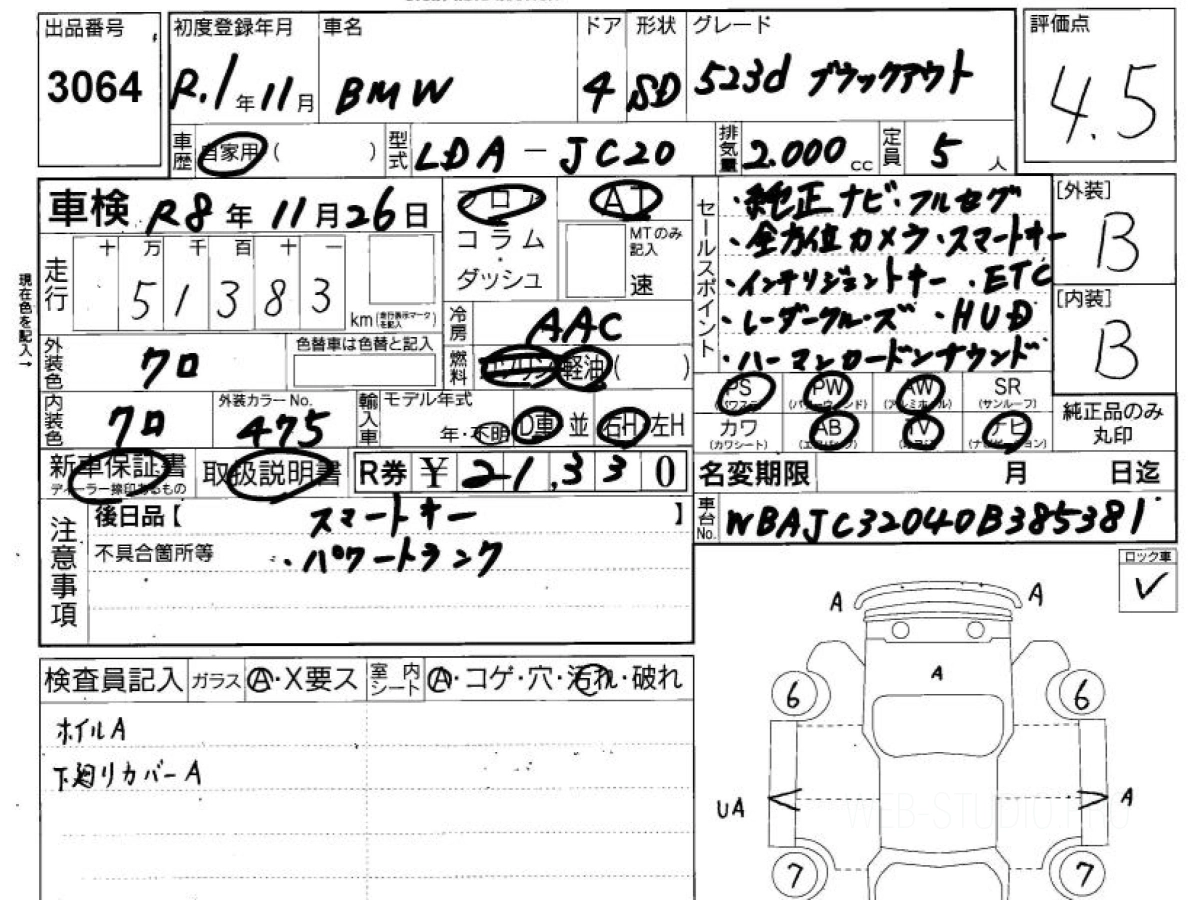 出品番号 初度登録年月 車名 ドア 形状 グレード 評価点
3064 R.1年11月 BMW 4 SD 523d ブラックアウト 4.5
車歴 自家用 ( ) 型式 LDA-JC20 排気量 2.000cc 定員 5人
車検 R8年11月26日 フロア AT セールスポイント ・純正ナビ・フルセグ [外装]
コラム・ MTのみ記入 ・全方位カメラ・スマートキー B
十 万 千 百 十 一
走行 51383 km (走行表示マークを記入) ダッシュ 速 ・インテリジェントキー ・ETC
現在色を記入→ 冷房 AAC ・レーダークルーズ ・HUD [内装]
外装色 クロ 色替車は色替と記入 燃料 ガソリン 軽油 ( ) ・ハーマンカードンサウンド B
PS (パワステ) PW (パワーウィンド) AW (アルミホイル) SR (サンルーフ)
内装色 クロ 外装カラーNo. 475 輸入車 モデル年式 年・不明 D車 並 右H 左H
カワ (カワシート) AB (エアバッグ) TV (テレビ) ナビ (ナビゲーション) 純正品のみ丸印
新車保証書 ディーラー捺印あるもの 取扱説明書 R券 ¥ 21,330 名変期限 月 日迄
注意事項 後日品【 スマートキー 】 車台No. WBAJC32040B385381
不具合箇所等 ・パワートランク
ロック車 ✓
A A
検査員記入 ガラス A・X要ス 室内シート A・コゲ・穴・汚れ・破れ
A
6 6
ホイルA
下廻りカバーA
UA A
WEB-STUDIO.PRO
7 7